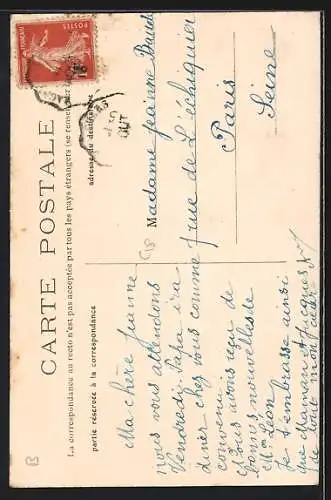 CARTE POSTALE
La correspondance au recto n'est pas acceptée par tous les pays étrangers (se renseigner
partie réservée à la correspondance
adresse du destinataire
Ma chère Jeanne
nous vous attendons
Vendredi. Papa ira
dîner chez vous comme
convenu.
Nous avons reçu de
bonnes nouvelles de
Mr Léon
Je t'embrasse ainsi
que Maman et Jacques
de tout mon cœur
Madame Jeanne
rue de L'échiquier
Paris
Seine
POSTES